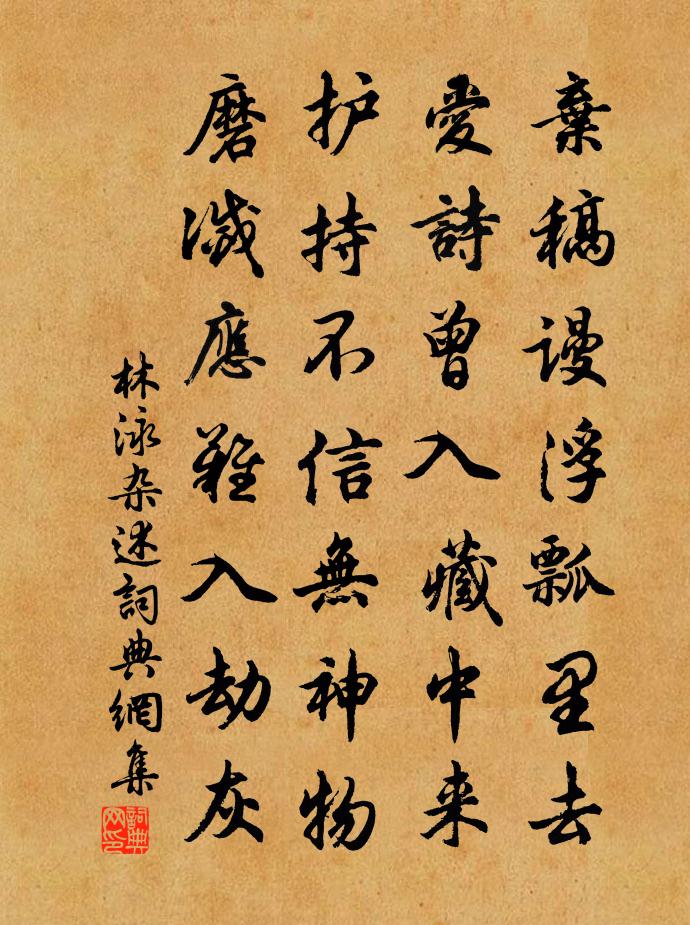 棄稿謾浮瓢里去
愛詩曾入藏中来
护持不信無神物
磨滅應難入劫灰
林泳杂述詞典網集
詞典網印